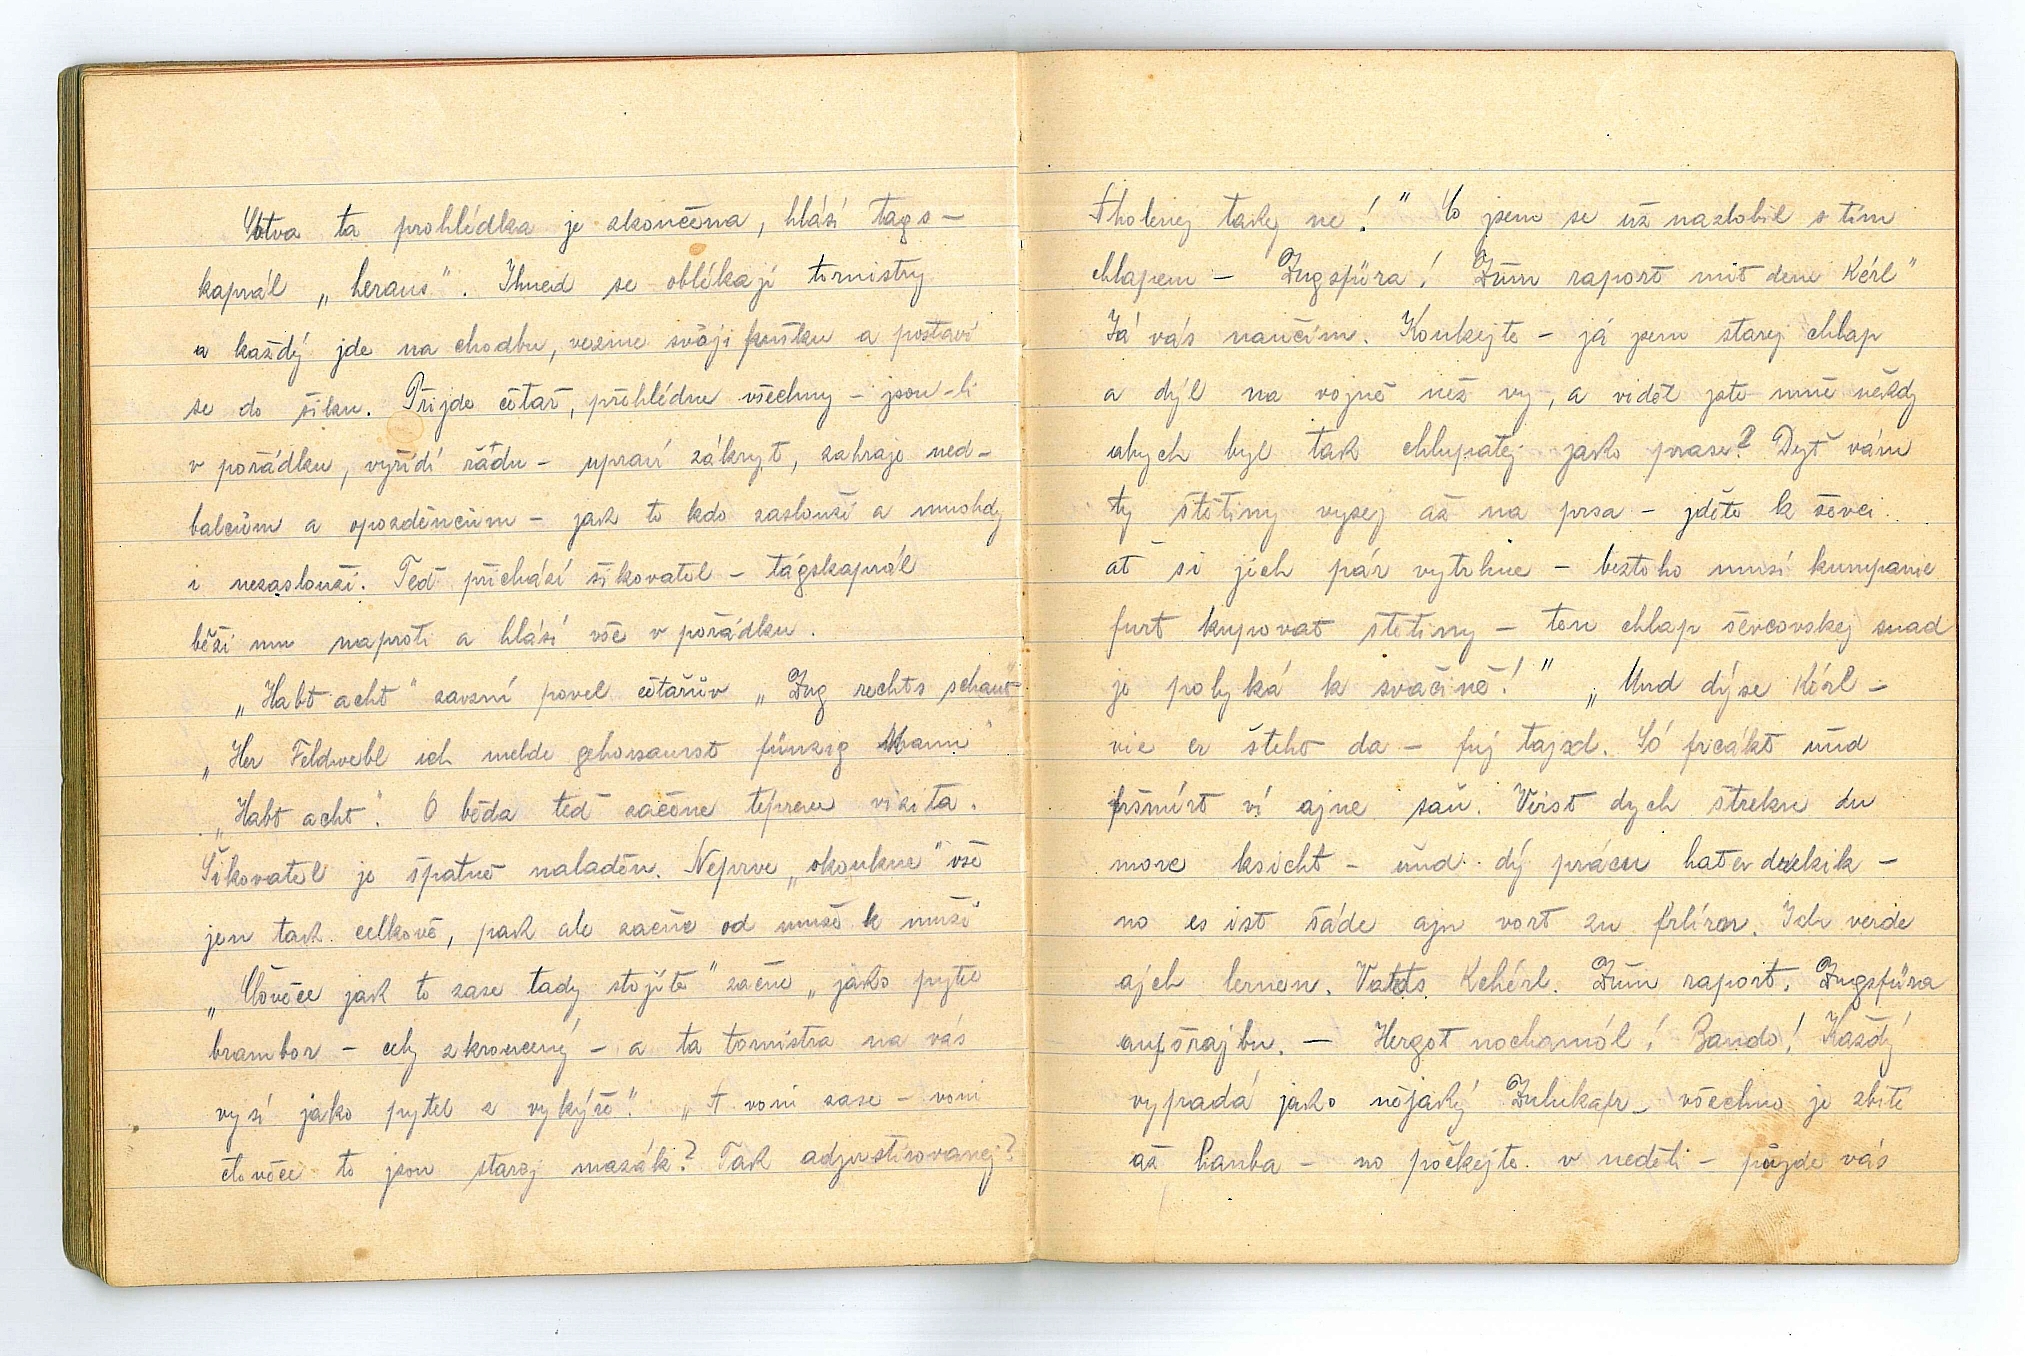 Sotva ta prohlédka je skončena, hlásí tags-
kaprál „heraus". Ihned se oblékají tornistry
a každý jde na chodbu, vezme svoji pušku a postaví
se do šiku. Přijde četař, přehlédne všechny – jsou-li
v pořádku, vyřídí řádu – upraví zákryt, zahraje ned-
balcům a opozděncům – jak to kdo zaslouží a mnohdy
i nezaslouží. Teď přichází šikovatel – tágskaprál
běží mu naproti a hlásí vše v pořádku.
„Habt acht" zavzní povel četařův „Zug rechts schaut"
„Her Feldwebl ich melde gehorsaumst fünzig Mann"
„Habt acht". O běda teď začne téprve visita.
Šikovatel je špatně naladěn. Neprve „okoukne" vše
jen tak celkově, pak ale začne od muže k muži
„Člověče jak to zase tady stojíte" začne „jako pytel
brambor – cely zkroucený – a ta tornistra na vás
vysí jako pytel z vykýře". „A voni zase – voni
člověče to jsou starej mazák? Tak adjustirovanej?
Aholenej taky ne!" Co jsem se už nazlobil s tím
chlapem – Zugsfüra! Zum raport mit dem Kérl"
Já vás naučím. Koukejte – já jsem starej chlap
a dýl na vojně než vy, a viděl jste mně někdy
abych byl tak chlupatej jako prase? Dyť vám
ty štětiny vysej až na prsa – jděte k ševci
ať si jich pár vytrhne – beztoho musí kumpanie
furt kupovat štětiny – ten chlap ševcovskej snad
je polyká k svačině!" „Und dýse Kérl –
vie er šteht da – fuj tajxl. Só frcákt und
fršmírt ví ajne sau. Virst dych streku du
more ksicht – und dý prácn hat er drekik –
no es ist šáde ajn vort zu frlíren. Ich verde
ajch lernen. Vatds Kehérl. Zum raport. Zugsfüra
aufšrajbn. – Hergot nochamól! Bando! Každý
vypadá jako nějaký Zulukafr – všechno je zbité
až hanba – no počkejte v neděli – půjde vás